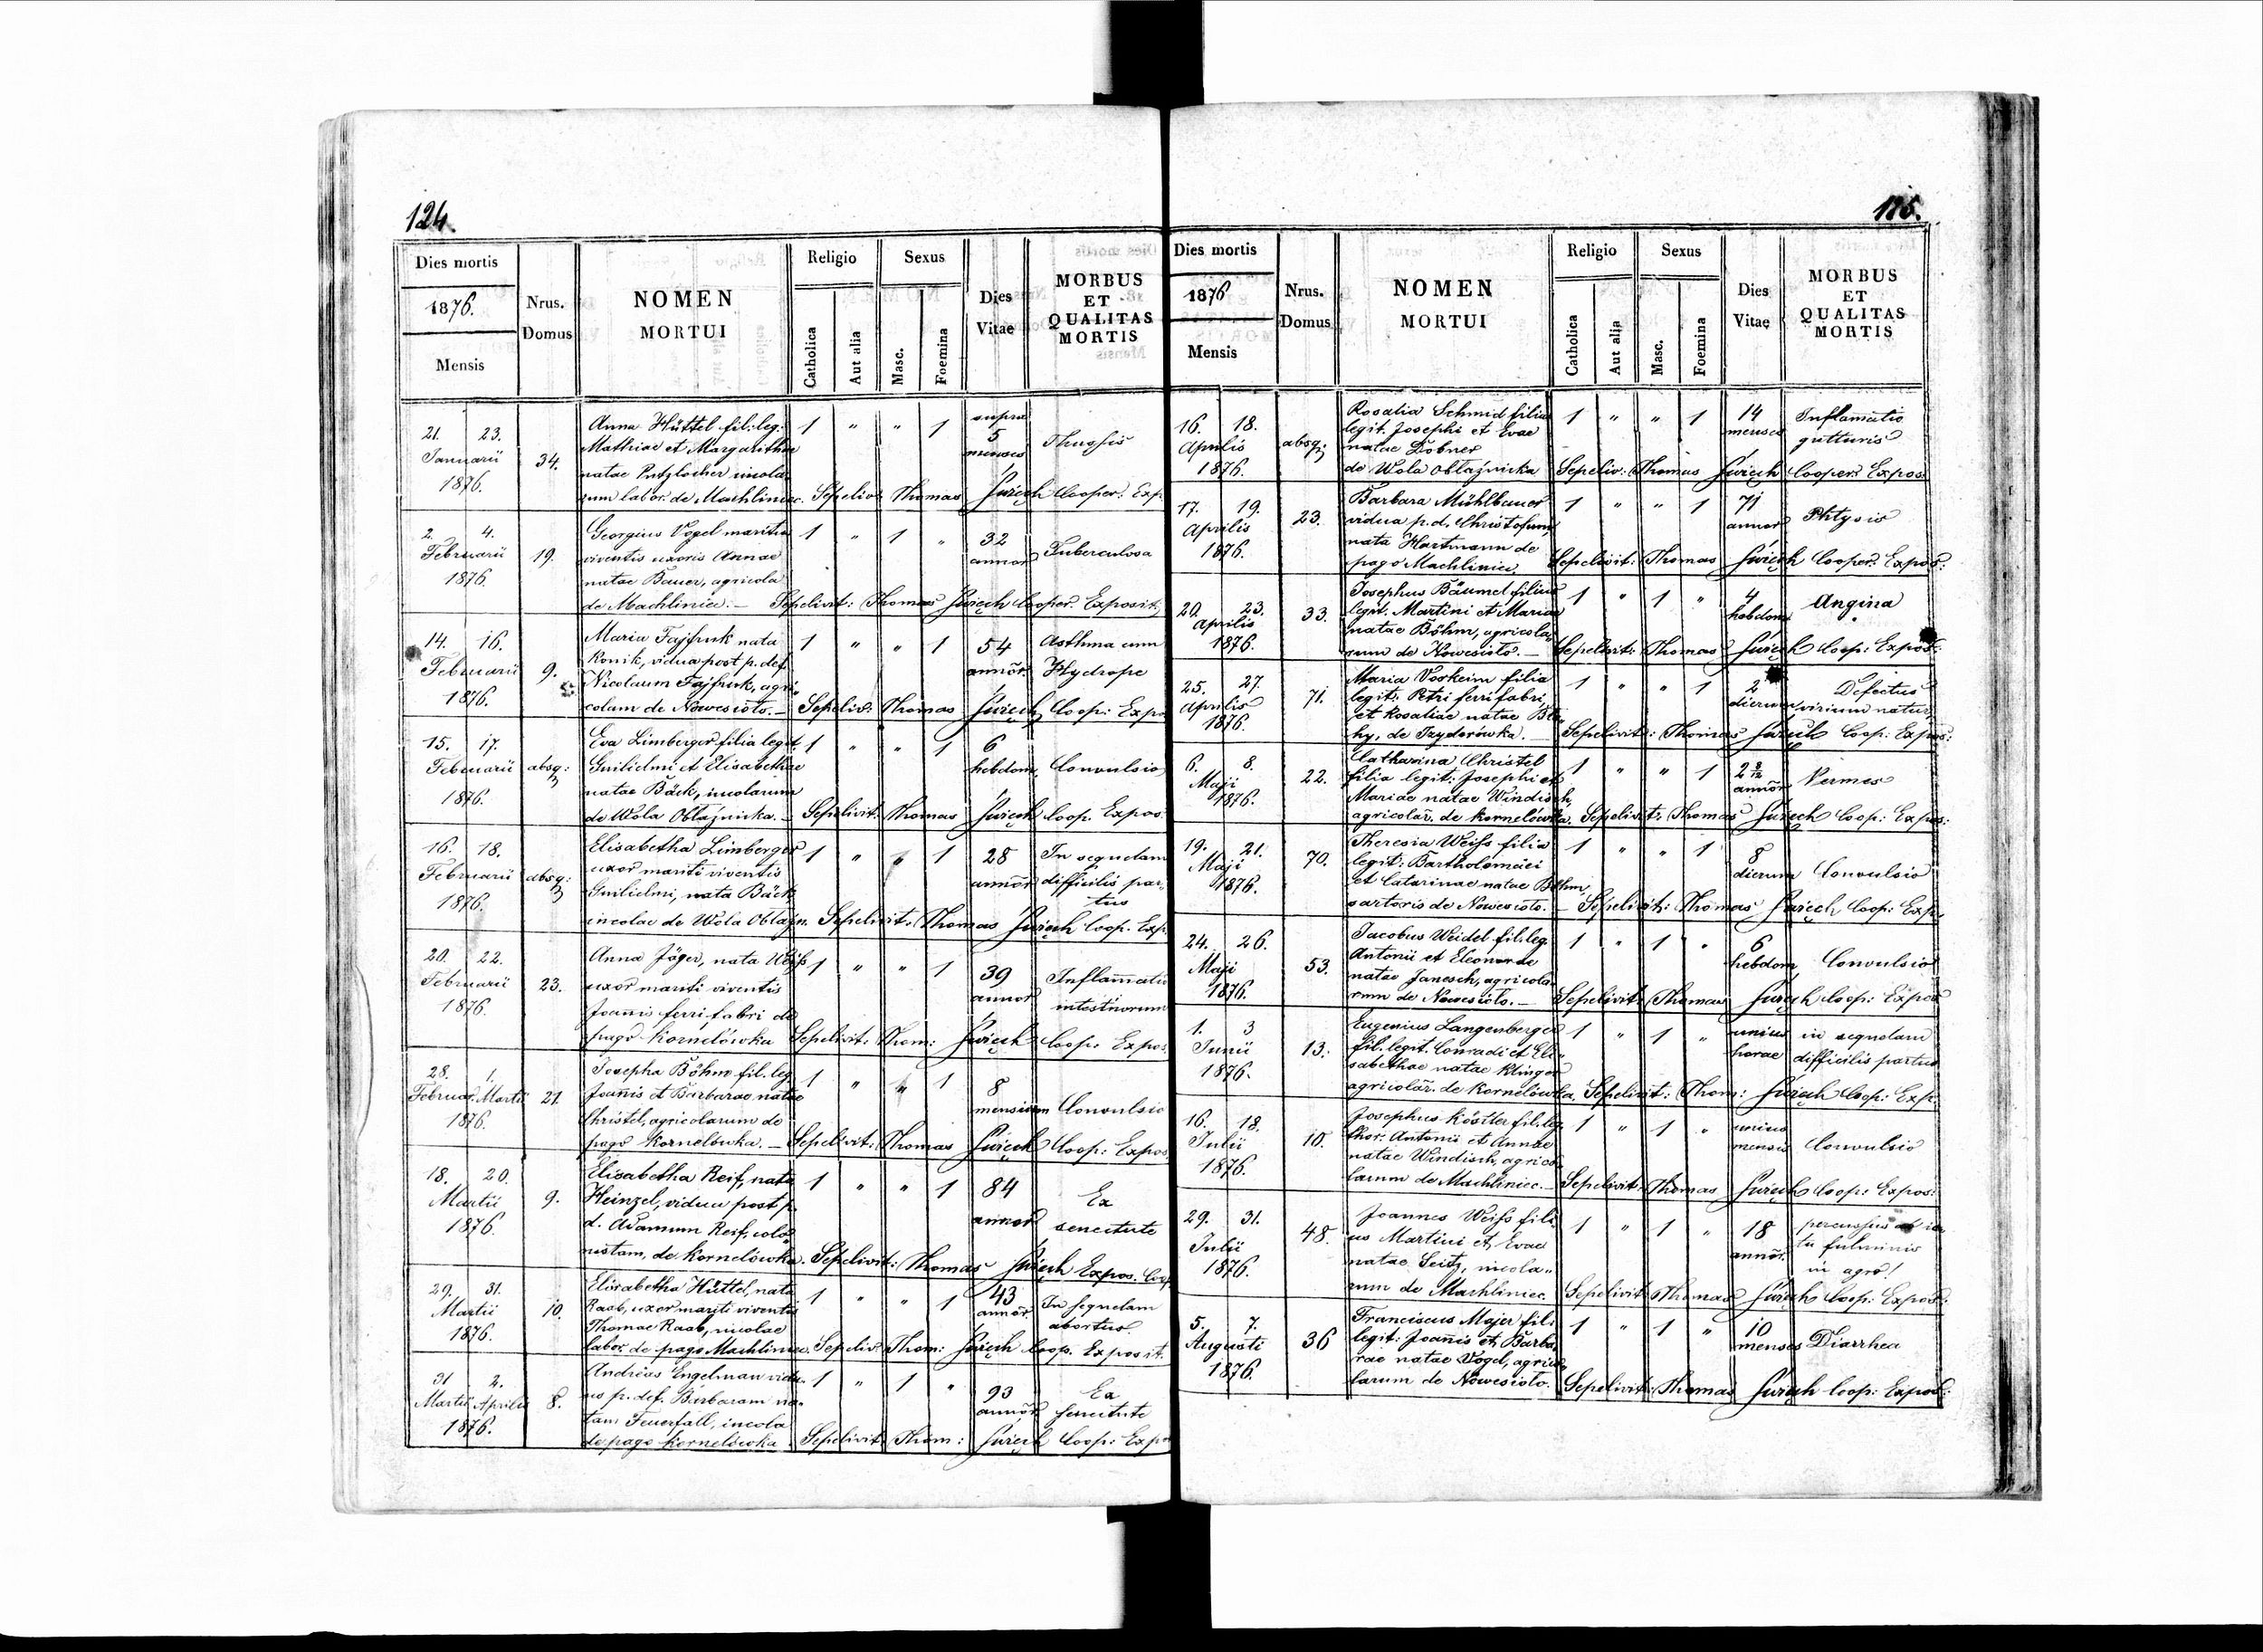 124.
Dies mortis
1876.
Mensis
Nrus.
Domus
NOMEN
MORTUI
Religio
Catholica
Aut alia
Sexus
Masc.
Foemina
Dies
Vitae
MORBUS
ET
QUALITAS
MORTIS
21. 23.
Januarii
1876.
34.
Anna Hüttel fil: leg:
Mathiae et Margarithae
natae Putzlocher incola
rum labor. de Machliniec.
1 " " 1
supra
5
menses
Sepeliv: Thomas Świech Cooper. Exp.
2. 4.
Februarii
1876.
19.
Georgius Vogel maritus
viventis uxoris Annae
natae Bauer, agricola
de Machliniec. –
1 " 1 "
32
annor
Tuberculosa
Sepelivit: Thomas Świech Cooper. Exposit.
14. 16.
Februarii
1876.
9.
Maria Fajfruk nata
Konik, vidua post p. def.
Nicolaum Fajfruk, agri-
colam de Nowesioło. –
1 " " 1
54
annor.
Asthma cum
Hydrope
Sepeliv: Thomas Świech Coop: Expo
15. 17.
Februarii
1876.
absq:
Eva Limberger filia legit.
Guilielmi et Elisabethae
natae Bäck, incolarum
de Wola Obłaźnicka. –
1 " " 1
6
hebdom.
Convulsio
Sepelivit: Thomas Świech Coop. Expos.
16. 18.
Februarii
1876.
absq:
Elisabetha Limberger
uxor mariti viventis
Guilielmi, nata Bäck
incolae de Wola Obłazn.
1 " " 1
28
annor
In sequelam
difficilis par-
tus
Sepelivit: Thomas Świech Coop. Exp.
20. 22.
Februarii
1876.
23.
Anna Jäger, nata Weiss
uxor mariti viventis
Joannis ferri fabri de
pago Kornelówka
1 " " 1
39
annor
Inflamatio
intestinorum
Sepelivit: Thom: Świech Coop: Expos.
28. 1.
Februar. Martii
1876.
21.
Josepha Böhm fil. leg.
Joanis et Barbarae natae
Christel, agricolarum de
pago Kornelówka. –
1 " " 1
8
mensium
Convulsio
Sepelivit: Thomas Świech Coop: Expos.
18. 20.
Martii
1876.
9.
Elisabetha Reif, nata
Heinzel, vidua post p.
d. Adamum Reif, colo-
nistam, de Kornelówka.
1 " " 1
84
annor
Ex
senectute
Sepelivit: Thomas Świech Expos. Coop
29. 31.
Martii
1876.
10.
Elisabetha Hüttel, nata
Raab, uxor mariti viventis
Thomae Raab, incolae
labor. de pago Machliniec.
1 " " 1
43
annor.
In sequelam
abortus.
Sepeliv: Thom: Świech Coop. Exposit.
31 2.
Martii Aprilis
1876.
8.
Andreas Engelman vidu-
us p. def. Barbaram na-
tam Feuerfall, incola
de pago Kornelówka
1 " 1 "
93
annor
Ex
senectute
Sepelivit. Thom: Świech Coop: Expo
Dies mortis
1876
Mensis
Nrus.
Domus
NOMEN
MORTUI
Religio
Catholica
Aut alia
Sexus
Masc.
Foemina
Dies
Vitae
MORBUS
ET
QUALITAS
MORTIS
16. 18.
Aprilis
1876.
absq:
Rosalia Schmid filia
legit. Josephi et Evae
natae Dobner
de Wola Obłaźnicka
1 " " 1
14
menses
Inflamatio
gutturis
Sepeliv: Thomas Świech Cooper. Expos.
17. 19.
Aprilis
1876.
23.
Barbara Mühlbauer
vidua p. d. Christofum,
nata Hartmann de
pago Machliniec.
1 " " 1
71
annor
Phtysis
Sepelivit: Thomas Świech Cooper. Expos:
20. 23.
Aprilis
1876.
33.
Josephus Bäumel filius
legit. Martini et Mariae
natae Böhm, agricola-
rum de Nowesioło. –
1 " 1 "
4
hebdom
Angina
Sepelivit: Thomas Świech Coop: Expos:
25. 27.
Aprilis
1876.
71.
Maria Vorkeim filia
legit. Petri ferri fabri
et Rosaliae natae
hy, de Izydorówka. –
1 " " 1
2
dierum
Defectus
virium natur.
Sepelivit: Thomas Świech Coop: Expos:
6. 8.
Maji
1876.
22.
Catharina Christel
filia legit: Josephi et
Mariae natae Windisch,
agricolar. de Kornelówka.
1 " " 1
2 8/12
annor
Vermes
Sepelivit: Thomas Świech Coop: Expos:
19. 21.
Maji
1876.
70.
Theresia Weiss filia
legit: Bartholomaei
et Catarinae natae Böhm,
sartoris de Nowesioło. –
1 " " 1
8
dierum
Convulsio
Sepelivit: Thomas Świech Coop: Exp.
24. 26.
Maji
1876.
53.
Jacobus Weidel fil. leg.
Antonii et Eleonorae
natae Janesch, agricola-
rum de Nowesioło. –
1 " 1 "
6
hebdom
Convulsio
Sepelivit: Thomas Świech Coop: Expos
1. 3
Junii
1876.
13.
Eugenius Langenberger
fil. legit. Conradi et Eli-
sabethae natae Klinger
agricolar. de Kornelówka.
1 " 1 "
unius
horae
in sequelam
difficilis partus
Sepelivit: Thom: Świech Coop: Exp.
16. 18.
Julii
1876.
10.
Josephus Kösler fil. leg.
thor. Antonii et Annae
natae Windisch, agrico-
larum de Machliniec. –
1 " 1 "
unius
mensis
Convulsio
Sepelivit: Thomas Świech Coop: Expos:
29. 31.
Julii
1876.
48.
Joannes Weiss fili-
us Martini et Evae
natae Seitz, incola-
rum de Machliniec.
1 " 1 "
18
annor.
percussus ab ic-
tu fulminis
in agro!
Sepelivit: Thomas Świech Coop: Expos:
5. 7.
Augusti
1876.
36
Franciscus Majer fil:
legit: Joanis et Barba-
rae natae Vogel, agrico-
larum de Nowesioło.
1 " 1 "
10
menses
Diarrhea
Sepelivit: Thomas Świech Coop: Expos: